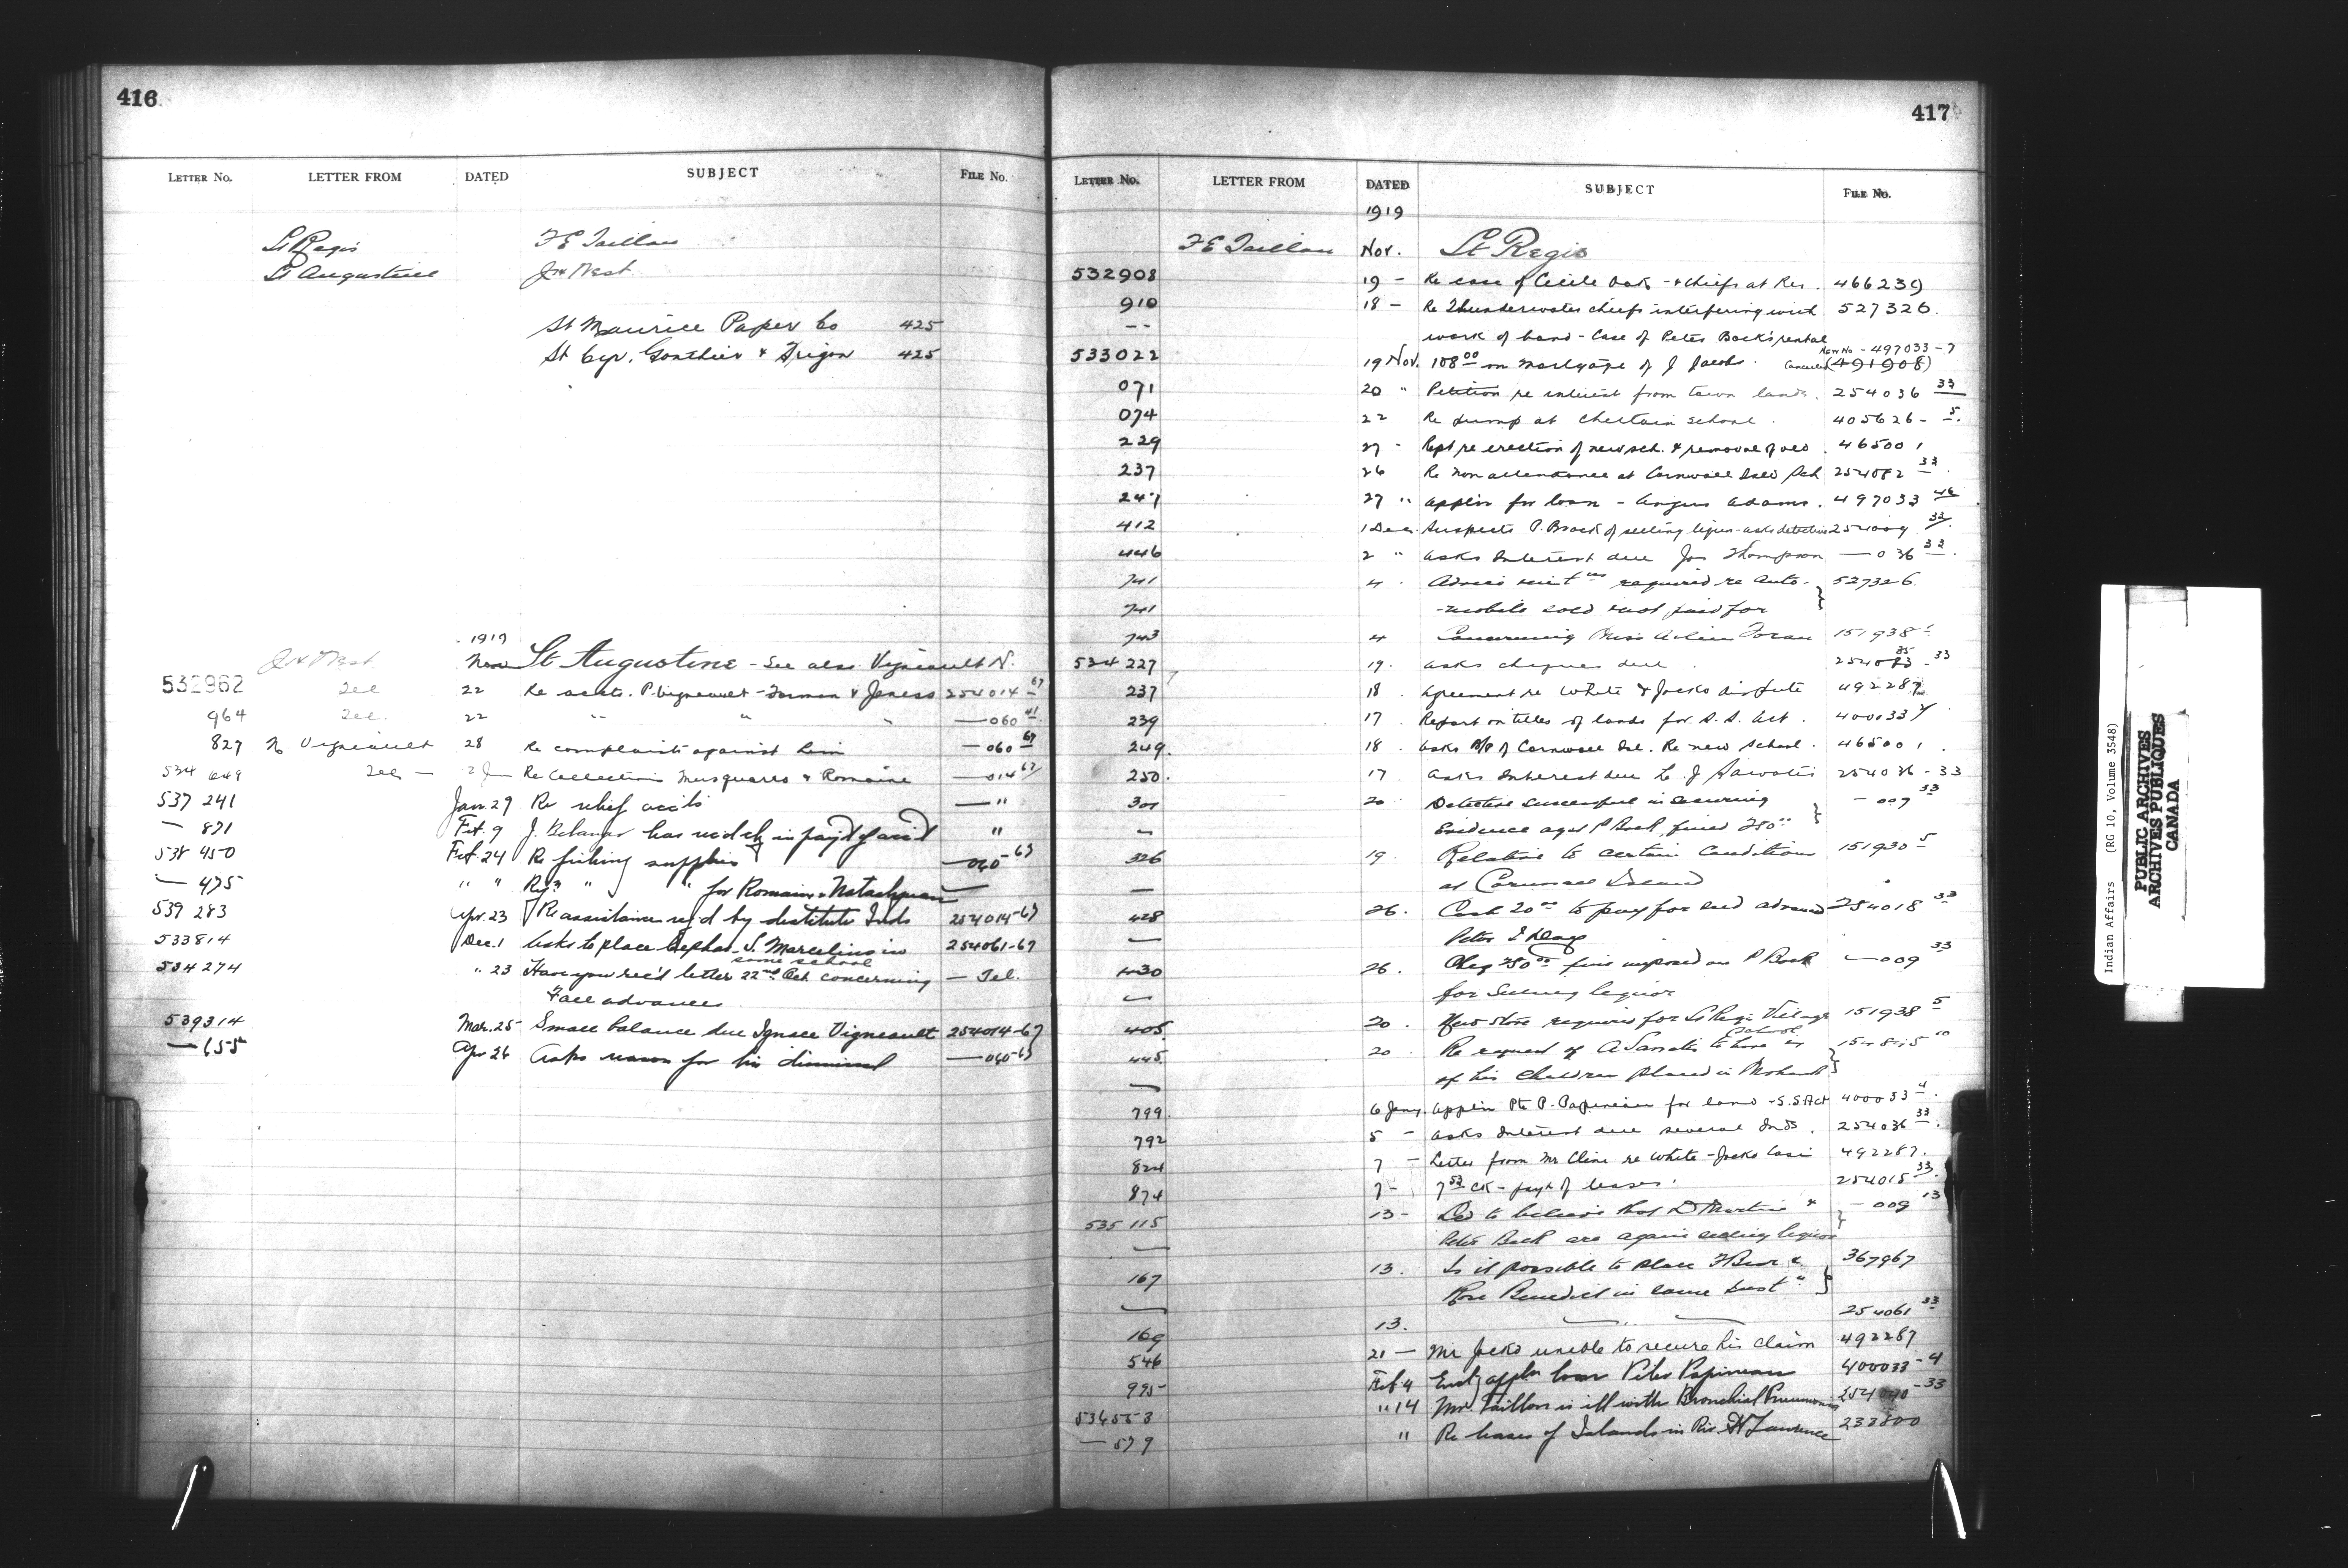 416
LETTER No. LETTER FROM DATED SUBJECT FILE No.
St Regis F E Taillon
St Augustine
St Maurice Paper Co 425
St Cyr, Gonthier & Frigon 425
1919
Nov St Augustine - See also Vigneault N.
532962 Tel 22 Re accts. P. Vigneault - & 254014 67
964 Tel. 22 " " " — 060
827 N Vigneault 28 Re complaints against him — 060 67
534 649 Tel — 2 Jan Re Collections Musquaro & Romaine — 014 67
537 241 Jan. 29 Re relief accts — "
— 871 Feb. 9 J. Belanger has rec'd ck in paym't of acc't "
538 450 Feb. 24 Re fishing supplies — 060-67
— 475 " " " " for Romaine & Natashquan —
539 283 Apr. 23 Re assistance rq'd by destitute Inds 254014-67
533814 Dec. 1 Asks to place Cephas & S. Marceline in 254061-67
some school
534274 " 23 Have you rec'd letter 22nd Oct concerning — Tel.
Fall advances
539314 Mar. 25 Small balance due Ignace Vigneault 254014-67
— 655 Apr 26 Asks reason for his dismissal — 060-67
417
LETTER No. LETTER FROM DATED SUBJECT FILE No.
1919
F E Taillon Nov. St Regis
532908 19 - Re case of Cecile Oak - & Chiefs at Res. 466239
910 18 - Re Thunderwater chiefs interfering with 527326.
-- work of band - Case of Peter Back's rental
New No - 497033-7
533022 19 Nov. 108 00 on Mortgage of J Jacobs. Cancelled (491908)
071 20 " Petition re interest from town lands. 254036 33
074 22 Re pump at Chettain School. 405626 - 5.
229 27 - Rept re erection of new sch. & removal of old. 465001
237 26 Re non attendance at Cornwall Isld Sch 254082 33.
247 27 " Applin for loan - Angus Adams. 497033
412 1 Dec. Suspects P. Back of selling liquor - asks detective 254009 33
446 2 " Asks Interest due Jas Thompson — 036 33.
741 4 . Advice required re Auto- 527326.
741 -mobile sold & not paid for
743 4 Concerning Miss Toran 151938
534 227 19. Asks cheques due. - 33
237 18. Agreement re White & Jocko dispute 492287
239 17. Report on titles of lands for S. S. Act. 400033 4
249. 18. Asks of Cornwall Isl. Re new School. 465001.
250. 17 Asks Interest due L. J 254036 - 33
301 20 Detective successful in securing - 009 33
— Evidence agst P Back, fined 250 00
326 19. Relative to certain Conditions 151930 5
— at Cornwall Island
428 26. Cash 20 00 to pay for advanced 254018 33
— Peter
430 26. Cheq 250 00 fine imposed on P Back — 009 33
— for Selling liquor
405. 20. New Store required for St Regis Village 151938 5
445. 20. Re request of A to have
school
— of his Children placed in Mohawk
799. 6 Jany. Applin Pte P. Papineau for land - S.S. Act 400033 4.
792 5 - Asks Interest due several Inds. 254036 33.
824 7 - Letter from Mr Cline re White - Jocko Case 492287.
874 7 - ck - payt of leases. 254015 33.
535 115 13 - Led to believe that D Martin & - 009
— Peter Back are again selling liquor
167 13. Is it possible to place & 367967
— Rose Benedict in some Inst
169 13. — " — 254061 33
546 21 — Mr Jocko unable to secure his claim 492287
995 Feb 4 applin loan Peter Papineau 400033-4
536553 " 14 Mr. Taillon is ill with Bronchial Pneumonia 254040-33
— 579 " Re leases of Islands in Riv. St Lawrence 233800
Indian Affairs (RG 10, Volume 3548)
PUBLIC ARCHIVES
ARCHIVES PUBLIQUES
CANADA